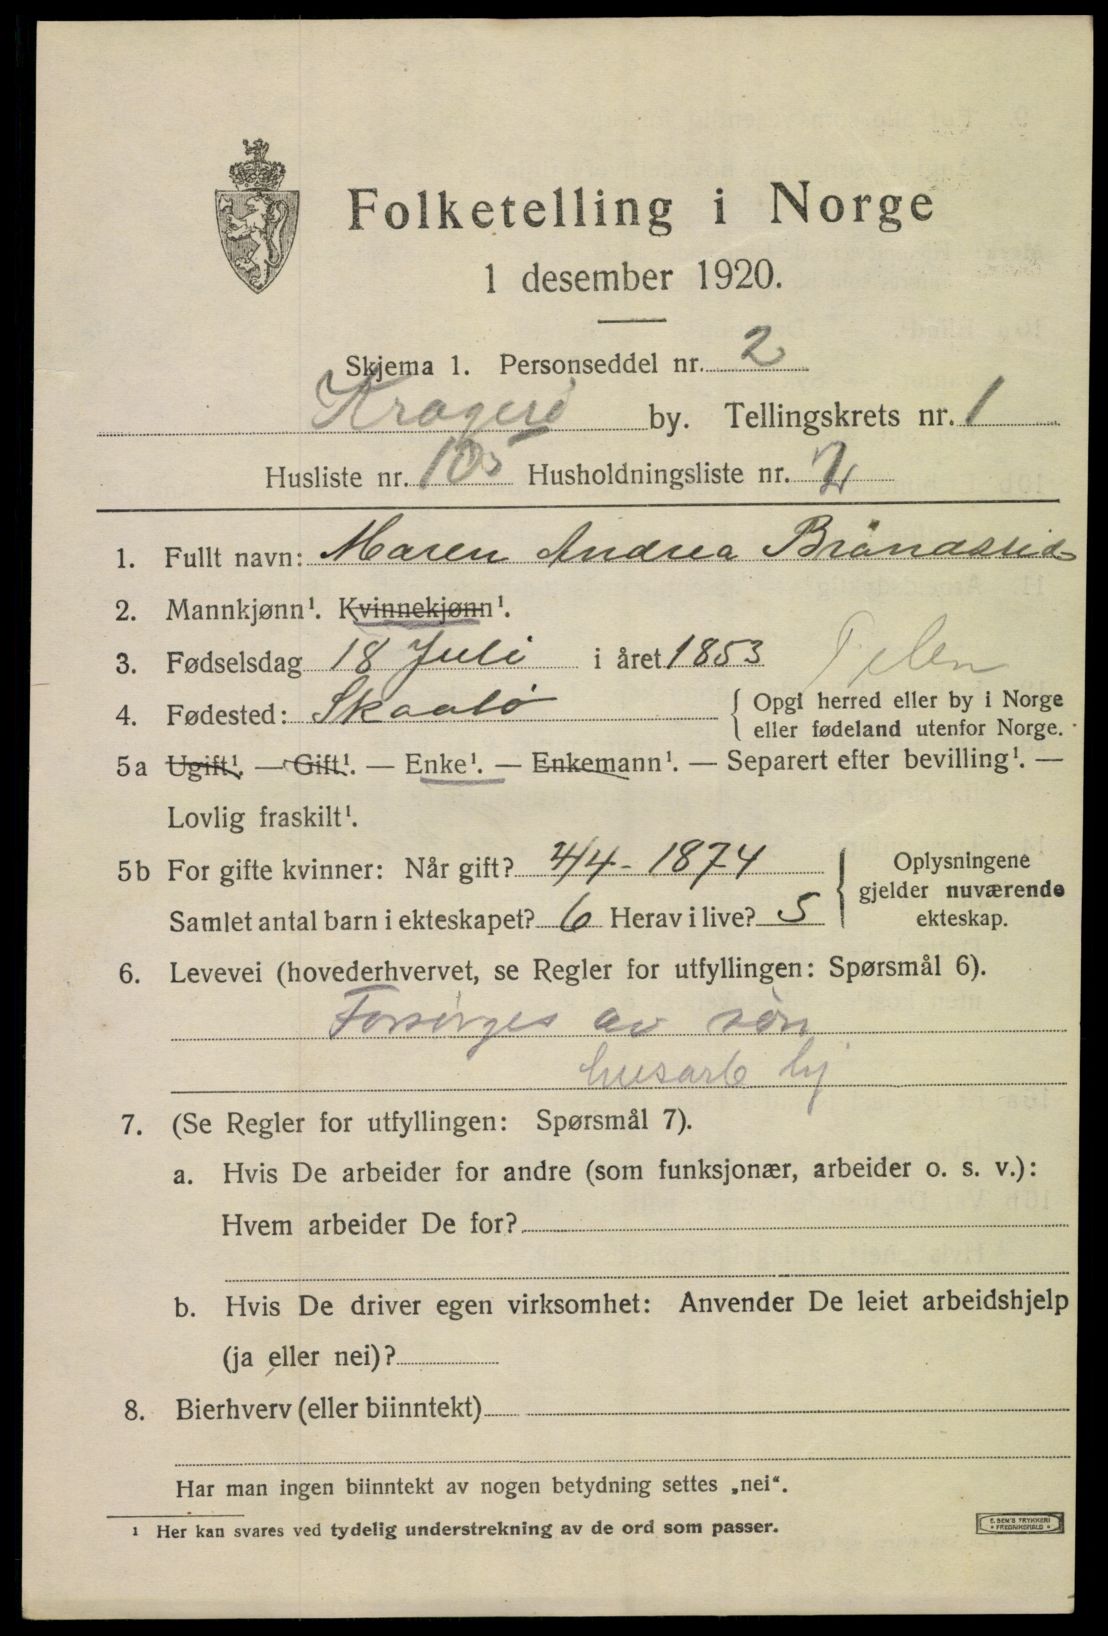 Folketelling i Norge
1 desember 1920.
Skjema 1. Personseddel nr. 2
Kragerø by. Tellingskrets nr. 1
Husliste nr. 105 Husholdningsliste nr. 2
1. Fullt navn: Maren Andrea Bröndsrid
2. Mannkjønn¹. Kvinnekjønn¹.
3. Fødselsdag 18 Juli i året 1853
4. Fødested: Skaatø { Opgi herred eller by i Norge
eller fødeland utenfor Norge.
5a Ugift¹. — Gift¹. — Enke¹. — Enkemann¹. — Separert efter bevilling¹. —
Lovlig fraskilt¹.
5b For gifte kvinner: Når gift? 4/4 - 1874
Samlet antal barn i ekteskapet? 6 Herav i live? 5
{ Oplysningene
gjelder nuværende
ekteskap.
6. Levevei (hovederhvervet, se Regler for utfyllingen: Spørsmål 6).
Forsørges av søn
husarb hj
7. (Se Regler for utfyllingen: Spørsmål 7).
a. Hvis De arbeider for andre (som funksjonær, arbeider o. s. v.):
Hvem arbeider De for?
b. Hvis De driver egen virksomhet: Anvender De leiet arbeidshjelp
(ja eller nei)?
8. Bierhverv (eller biinntekt)
Har man ingen biinntekt av nogen betydning settes „nei“.
¹ Her kan svares ved tydelig understrekning av de ord som passer.